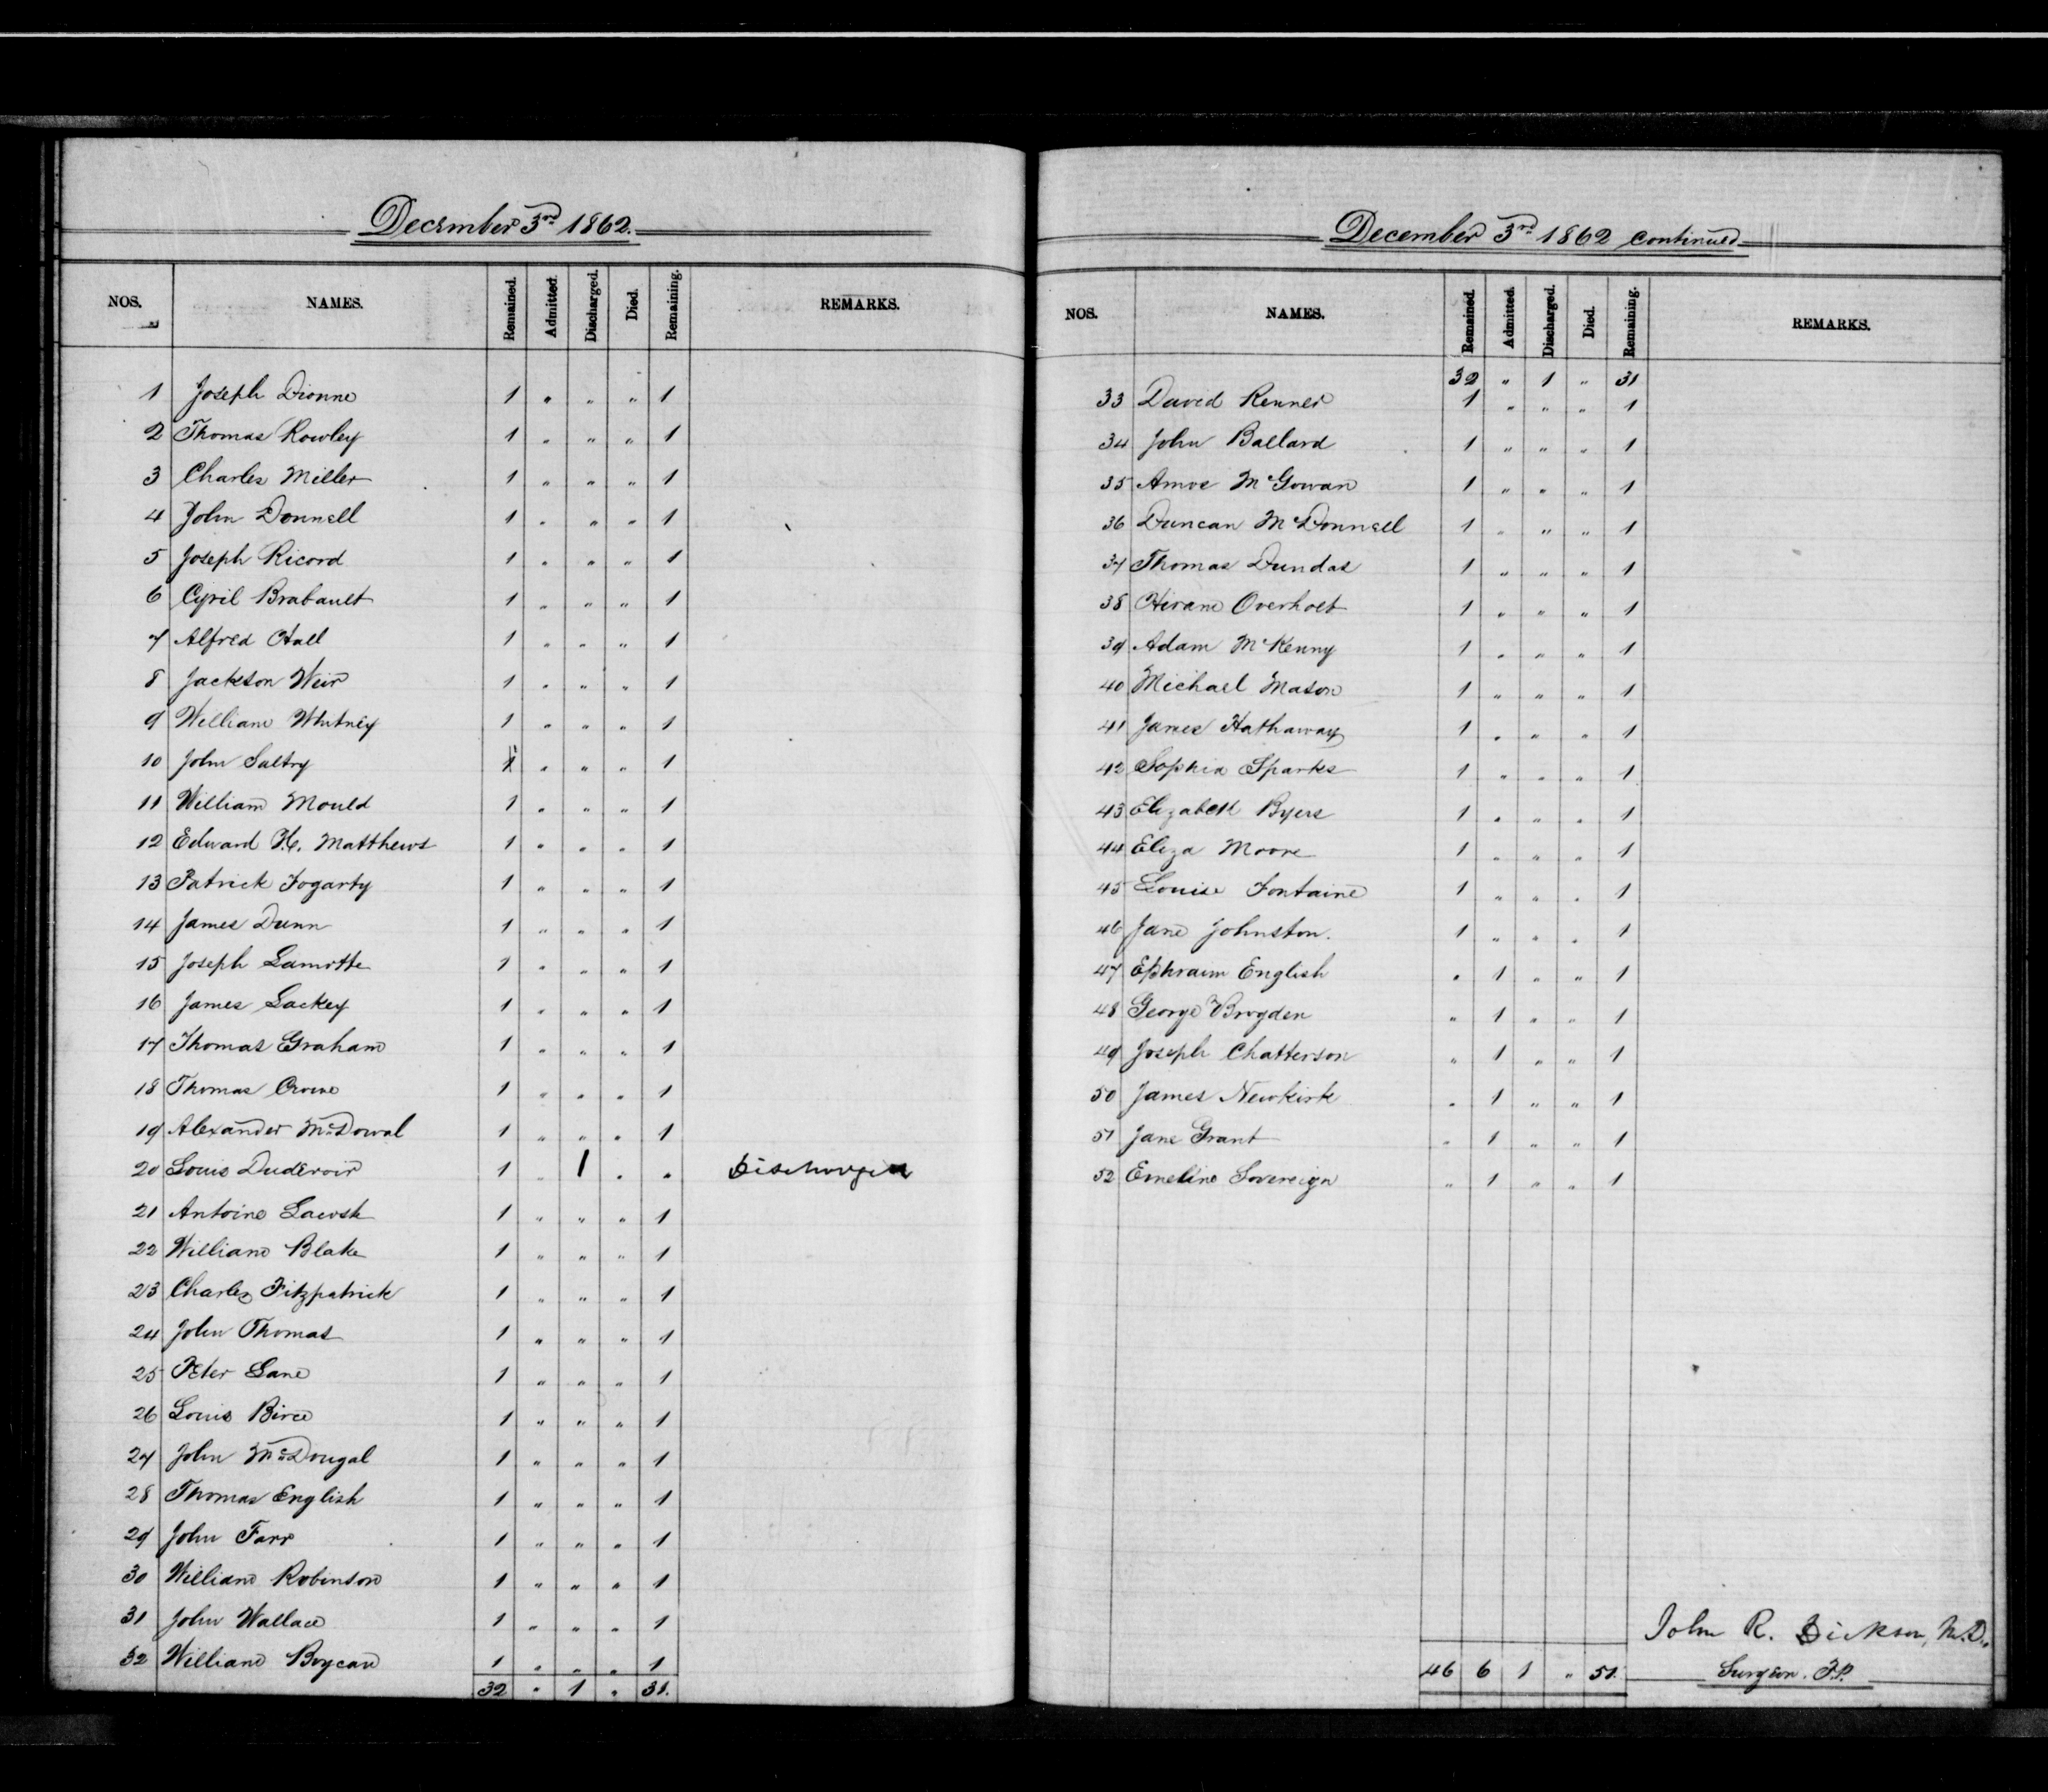 December 3rd 1862.
NOS. NAMES. Remained. Admitted. Discharged. Died. Remaining. REMARKS.
1 Joseph Dionne 1 " " " 1
2 Thomas Rowley 1 " " " 1
3 Charles Miller 1 " " " 1
4 John Donnell 1 " " " 1
5 Joseph Ricord 1 " " " 1
6 Cyril Brabault 1 " " " 1
7 Alfred Hall 1 " " " 1
8 Jackson Weir 1 " " " 1
9 William Whitney 1 " " " 1
10 John Saltry 1 " " " 1
11 William Mould 1 " " " 1
12 Edward H. Matthews 1 " " " 1
13 Patrick Fogarty 1 " " " 1
14 James Dunn 1 " " " 1
15 Joseph Lamotte 1 " " " 1
16 James Lackey 1 " " " 1
17 Thomas Graham 1 " " " 1
18 Thomas Crowe 1 " " " 1
19 Alexander McDowal 1 " " " 1
20 Louis Dudevoir 1 " 1 " " Discharged
21 Antoine 1 " " " 1
22 William Blake 1 " " " 1
23 Charles Fitzpatrick 1 " " " 1
24 John Thomas 1 " " " 1
25 Peter Lane 1 " " " 1
26 Louis Birce 1 " " " 1
27 John McDougal 1 " " " 1
28 Thomas English 1 " " " 1
29 John Farr 1 " " " 1
30 William Robinson 1 " " " 1
31 John Wallace 1 " " " 1
32 William Boycan 1 " " " 1
32 " 1 " 31.
December 3rd 1862 continued
NOS. NAMES. Remained. Admitted. Discharged. Died. Remaining. REMARKS.
32 " 1 " 31
33 David Renner 1 " " " 1
34 John Ballard 1 " " " 1
35 Amos McGowan 1 " " " 1
36 Duncan McDonnell 1 " " " 1
37 Thomas Dundas 1 " " " 1
38 Hiram Overholt 1 " " " 1
39 Adam McKenny 1 " " " 1
40 Michael Mason 1 " " " 1
41 James Hathaway 1 " " " 1
42 Sophia Sparks 1 " " " 1
43 Elizabeth Byers 1 " " " 1
44 Eliza Moore 1 " " " 1
45 Louise Fontaine 1 " " " 1
46 Jane Johnston. 1 " " " 1
47 Ephraim English " 1 " " 1
48 George Brogden " 1 " " 1
49 Joseph Chatterson " 1 " " 1
50 James Newkirk " 1 " " 1
51 Jane Grant " 1 " " 1
52 Emeline Sovereign " 1 " " 1
John R. Dickson, M.D.,
46 6 1 " 51. Surgeon. P.P.